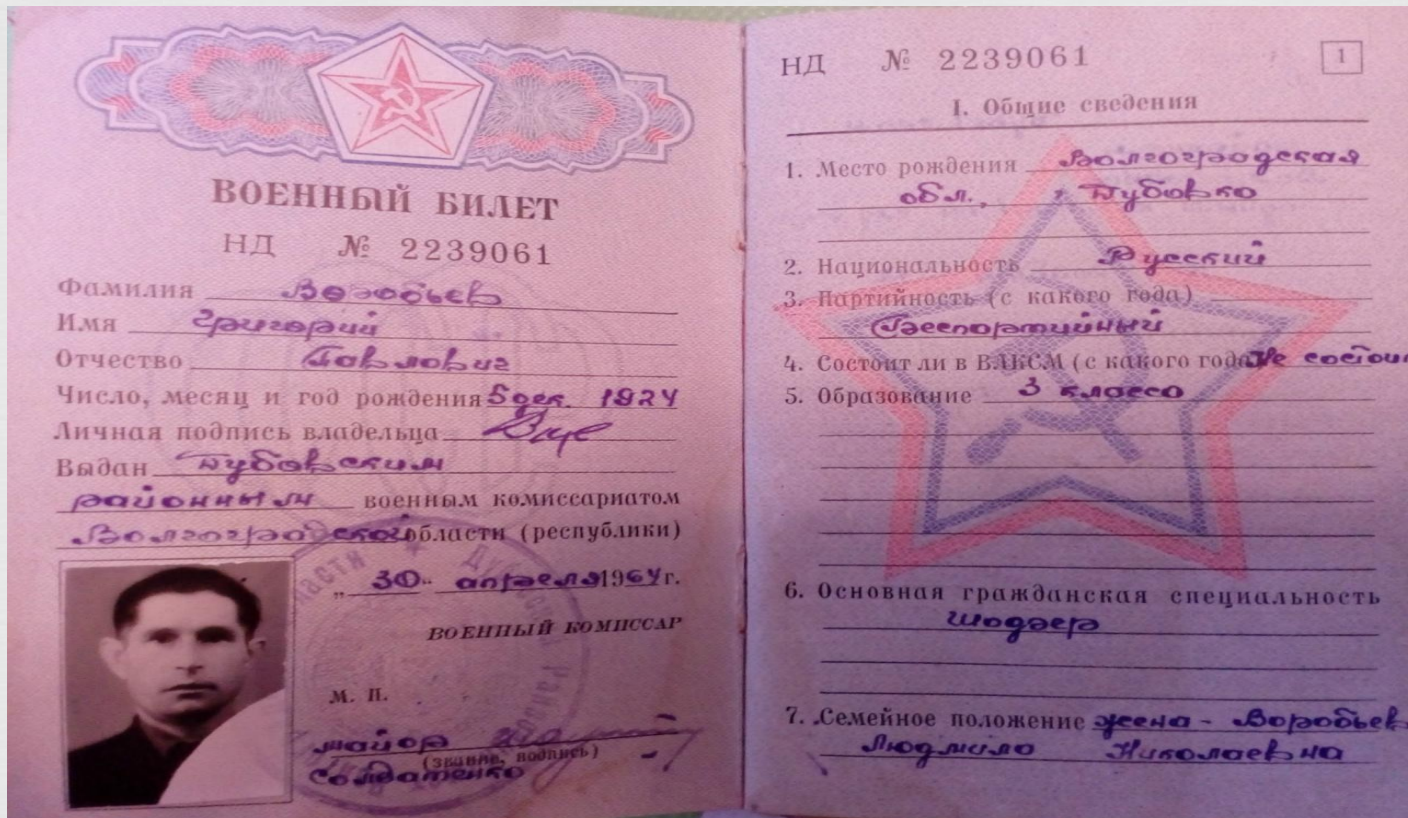 ВОЕННЫЙ БИЛЕТ
НД № 2239061
Фамилия Воробьев
Имя Григорий
Отчество Павлович
Число, месяц и год рождения 5 дек. 1924
Личная подпись владельца
Выдан Дубовским
районным военным комиссариатом
Волгоградской области (республики)
„30“ апреля 1964 г.
ВОЕННЫЙ КОМИССАР
М. П.
майор
(звание, подпись)
Солдатенко
НД № 2239061
1
I. Общие сведения
1. Место рождения Волгоградская
обл., г. Дубовка
2. Национальность Русский
3. Партийность (с какого года)
Беспартийный
4. Состоит ли в ВЛКСМ (с какого года) Не состоит
5. Образование 3 класса
6. Основная гражданская специальность
7. Семейное положение жена - Воробьев
Людмила Николаевна